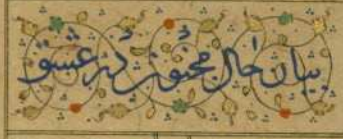 بیان حال مجنون در عشق